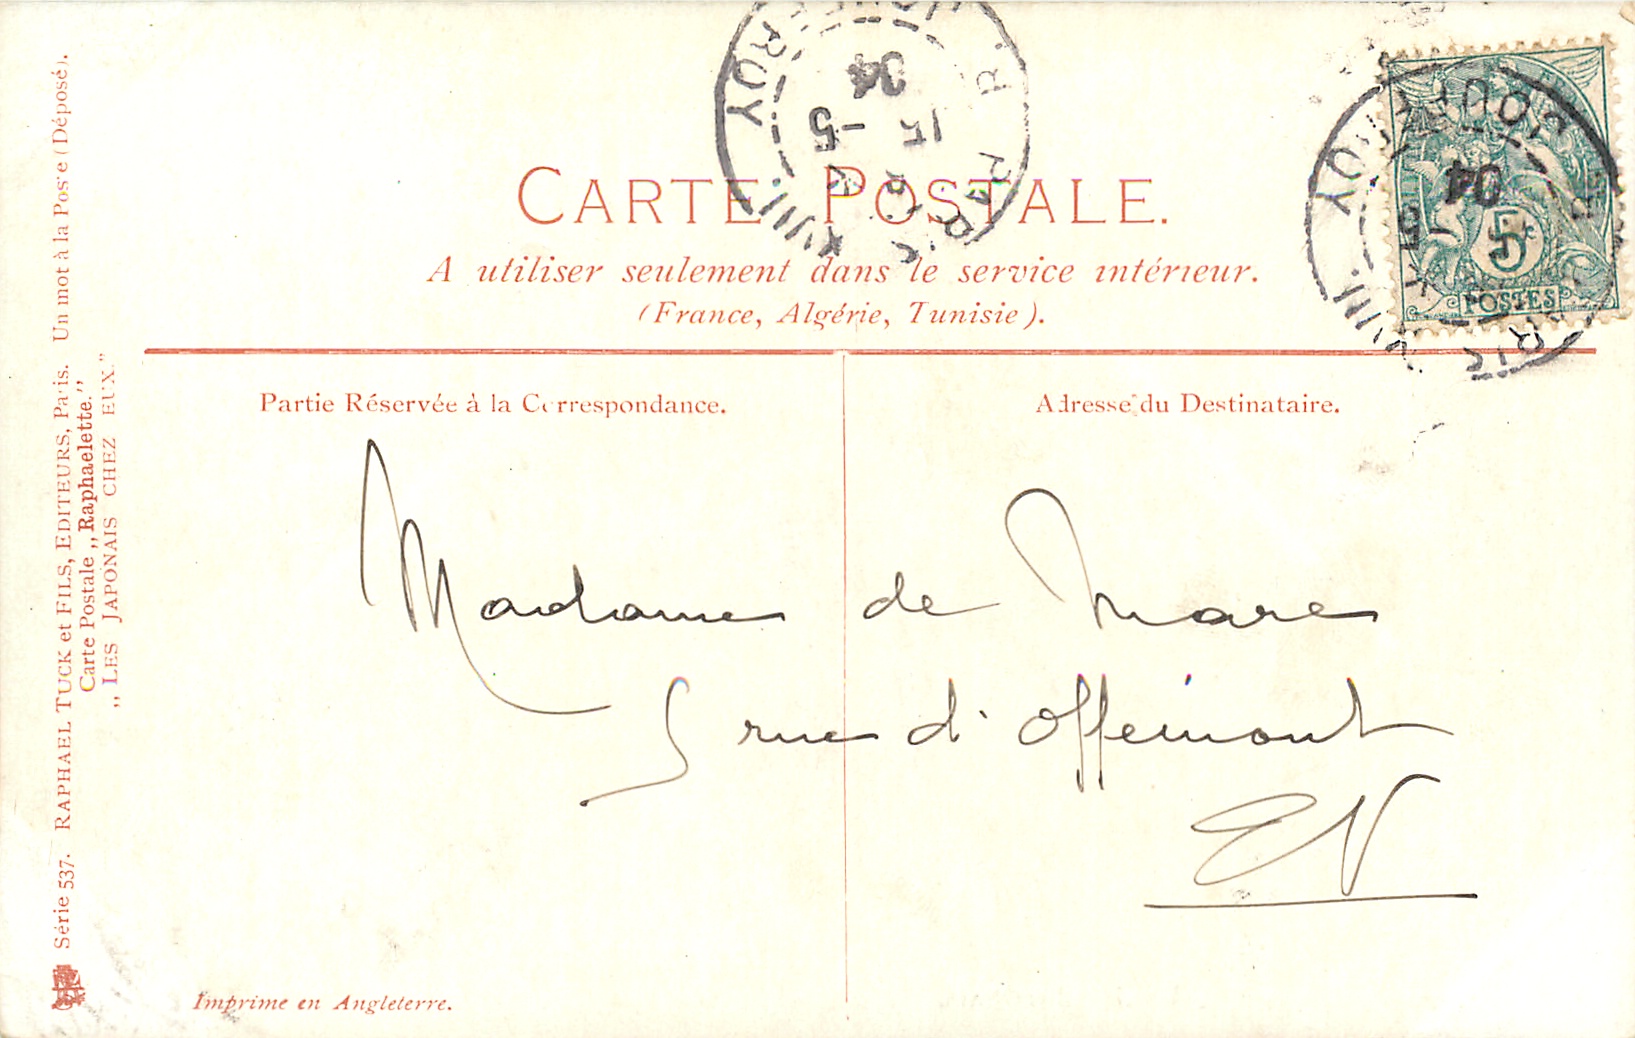 CARTE POSTALE.
A utiliser seulement dans le service intérieur.
(France, Algérie, Tunisie).
Partie Réservée à la Correspondance.
Adresse du Destinataire.
Madame de Mare
5 rue d'Offémont
EV
Imprime en Angleterre.
Série 537. RAPHAEL TUCK et FILS, EDITEURS, Paris. Un mot à la Poste (Déposé).
Carte Postale „Raphaelette."
„LES JAPONAIS CHEZ EUX."
5c
POSTES
PARIS XVIII
15
-5
04